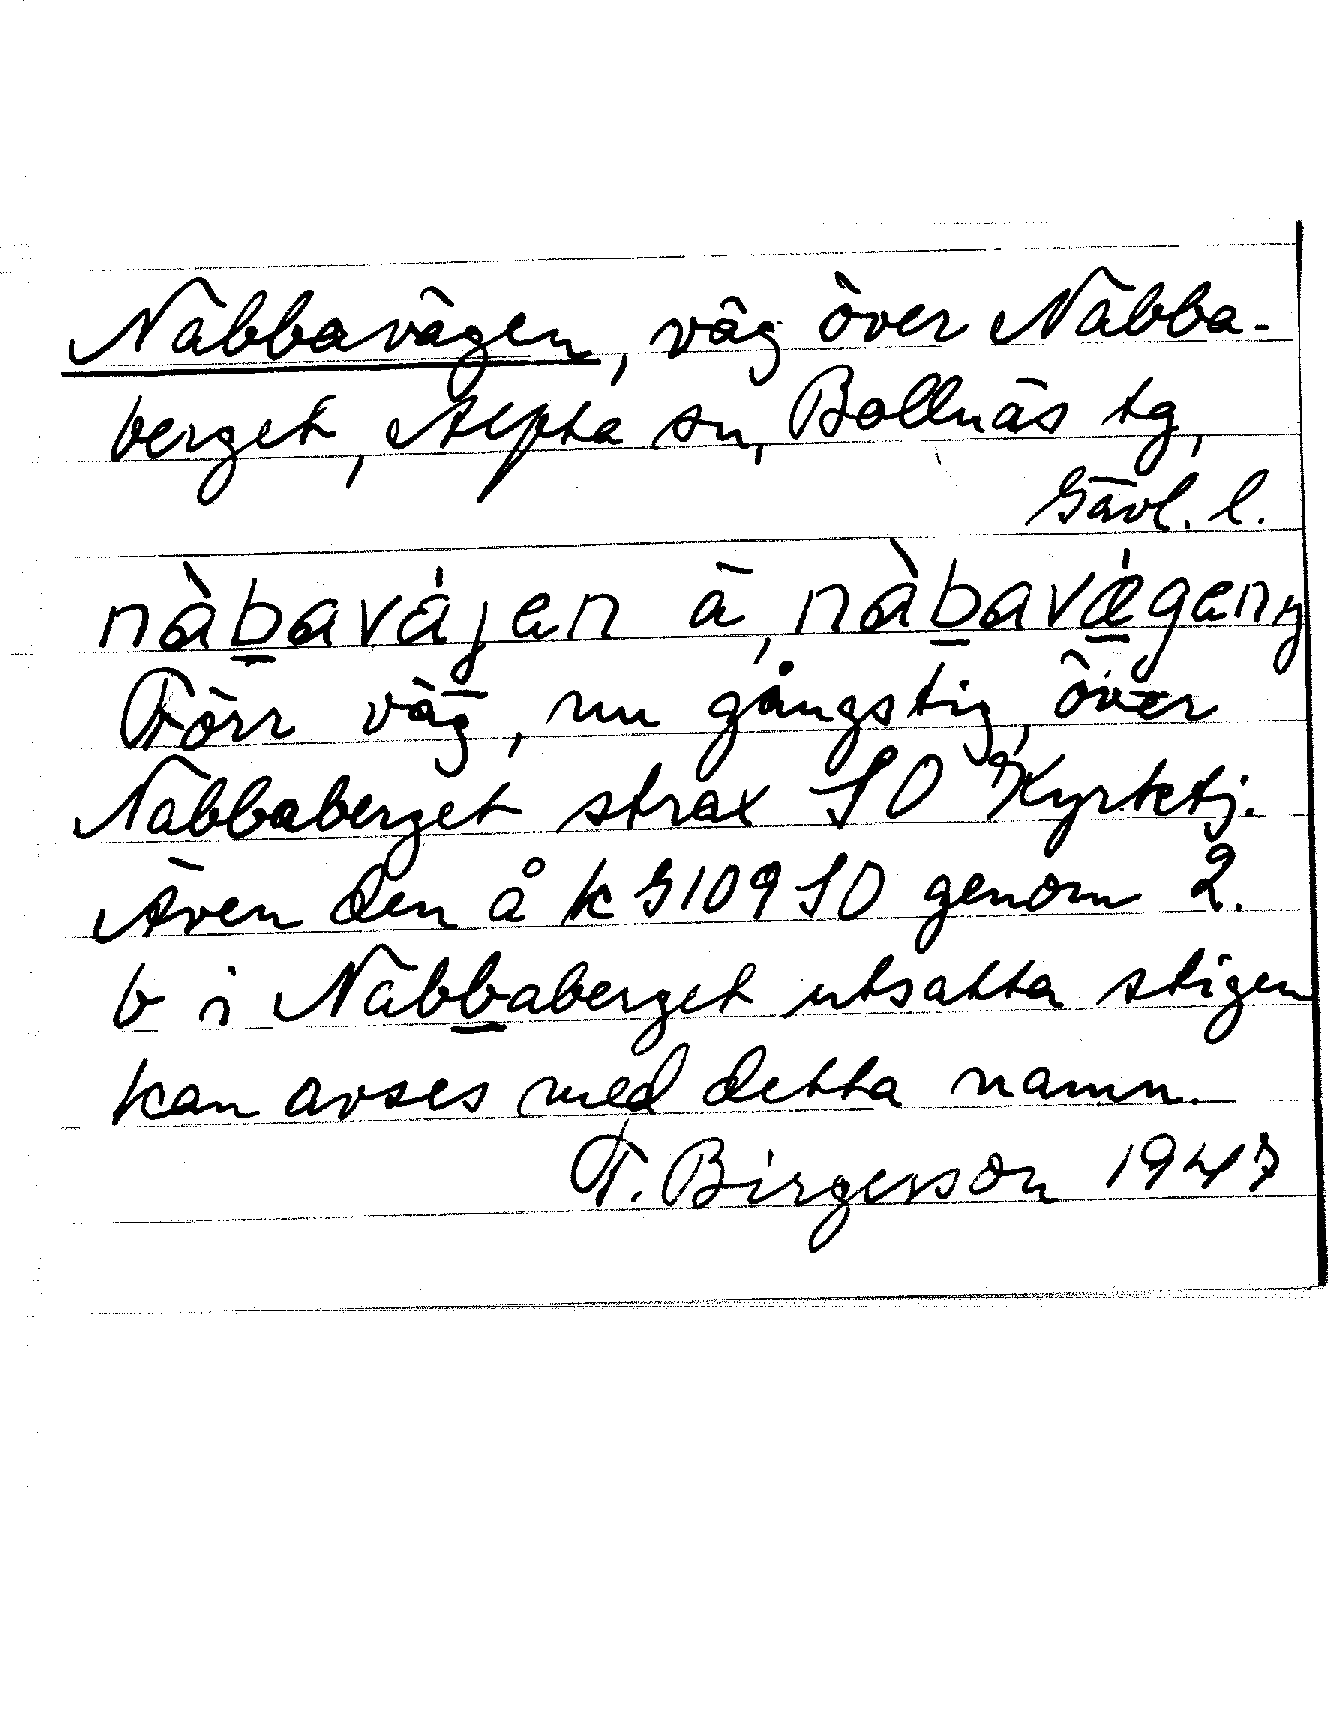 Näbbavägen, väg över Näbba-
berget, Alfta sn, Bollnäs tg,
Gävl. l.
nàbavájen ā, nàbavǽgen,
Förr väg, nu gångstig, över
Näbbaberget strax SO Kyrktj.
Även den å k G109 SO genom 2.
b i Näbbaberget utsatta stigen
kan avses med detta namn.
F. Birgersson 1947